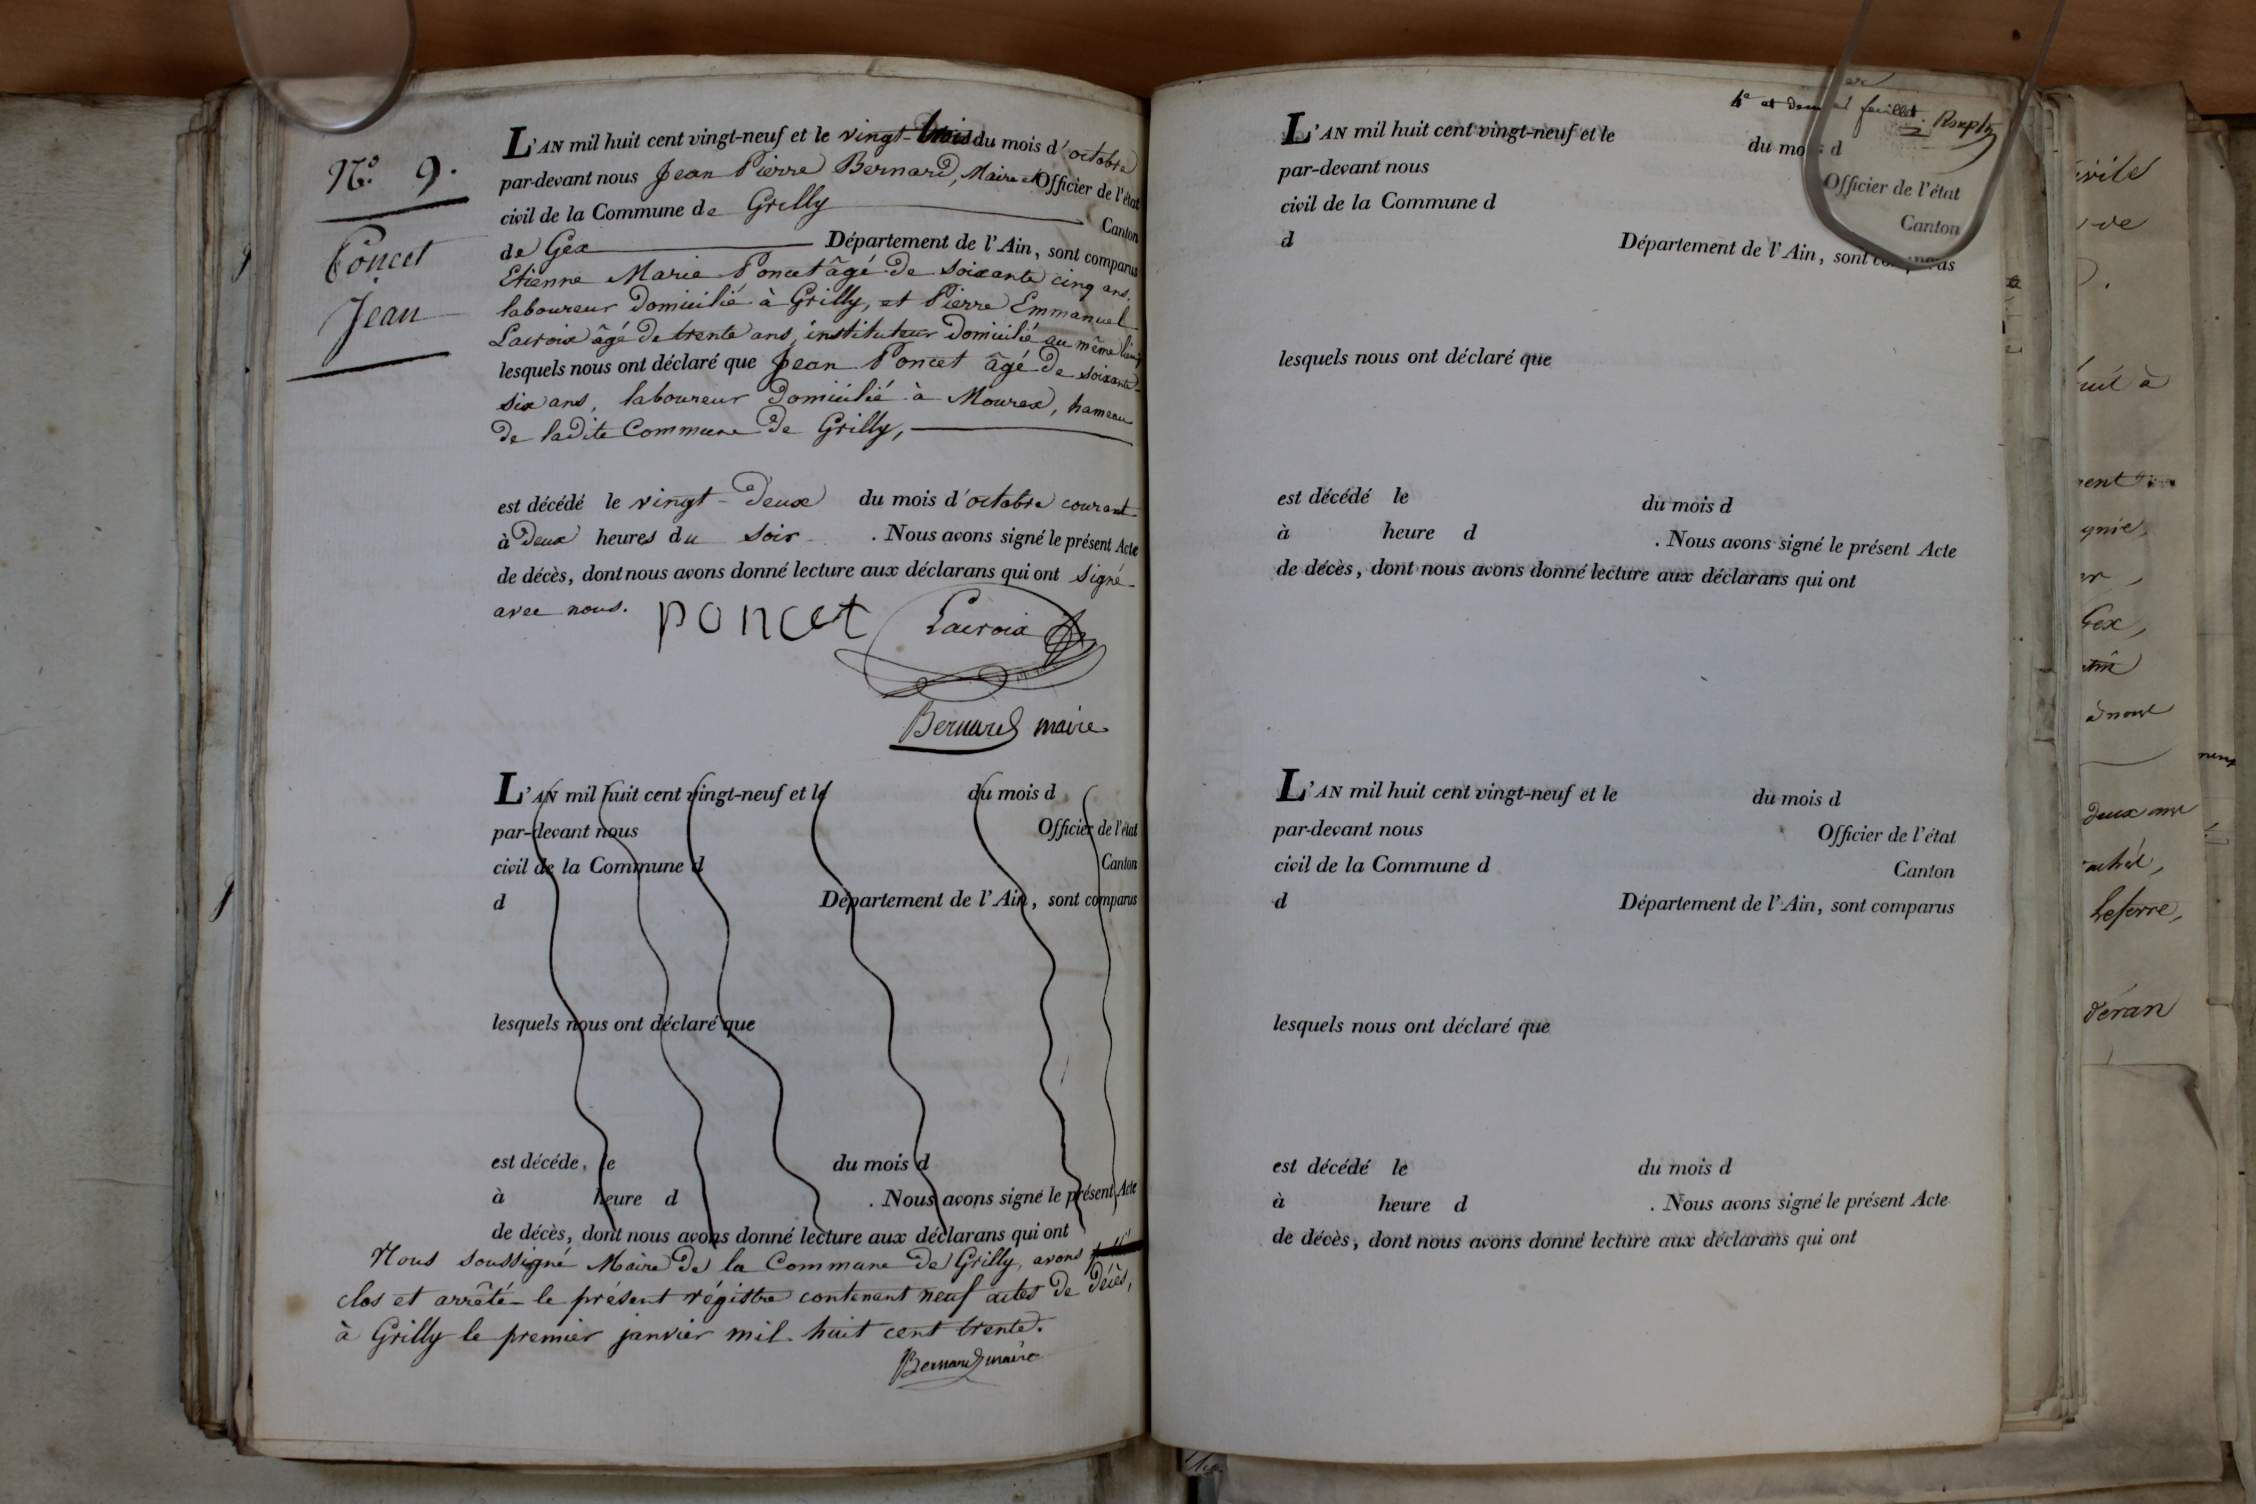 N.º 9.
Poncet
Jean
L'AN mil huit cent vingt-neuf et le vingt-trois du mois d'octobre
par-devant nous Jean Pierre Bernard, Maire et Officier de l'état
civil de la Commune de Grilly Canton
de Gex Département de l'Ain, sont comparus
Etienne Marie Poncet âgé de soixante cinq ans,
laboureur domicilié à Grilly, et Pierre Emmanuel
Lacroix âgé de trente ans, instituteur domicilié au même lieu,
lesquels nous ont déclaré que Jean Poncet âgé de soixante-
six ans, laboureur domicilié à Mourex, hameau
de ladite Commune de Grilly,
est décédé le vingt-deux du mois d'octobre courant
à deux heures du soir. Nous avons signé le présent Acte
de décès, dont nous avons donné lecture aux déclarans qui ont signé
avec nous. poncet Lacroix
Bernard maire
L'AN mil huit cent vingt-neuf et le du mois d
par-devant nous Officier de l'état
civil de la Commune d Canton
d Département de l'Ain, sont comparus
lesquels nous ont déclaré que
est décéde, le du mois d
à heure d . Nous avons signé le présent Acte
de décès, dont nous avons donné lecture aux déclarans qui ont
Nous soussigné Maire de la Commune de Grilly, avons
clos et arrêté le présent régistre contenant neuf actes de décès,
à Grilly le premier janvier mil huit cent trente.
Bernard maire
4e et dernier feuillet.
L'AN mil huit cent vingt-neuf et le du mois d
par-devant nous Officier de l'état
civil de la Commune d Canton
d Département de l'Ain, sont comparus
lesquels nous ont déclaré que
est décédé le du mois d
à heure d . Nous avons signé le présent Acte
de décès, dont nous avons donné lecture aux déclarans qui ont
L'AN mil huit cent vingt-neuf et le du mois d
par-devant nous Officier de l'état
civil de la Commune d Canton
d Département de l'Ain, sont comparus
lesquels nous ont déclaré que
est décédé le du mois d
à heure d . Nous avons signé le présent Acte
de décès, dont nous avons donné lecture aux déclarans qui ont